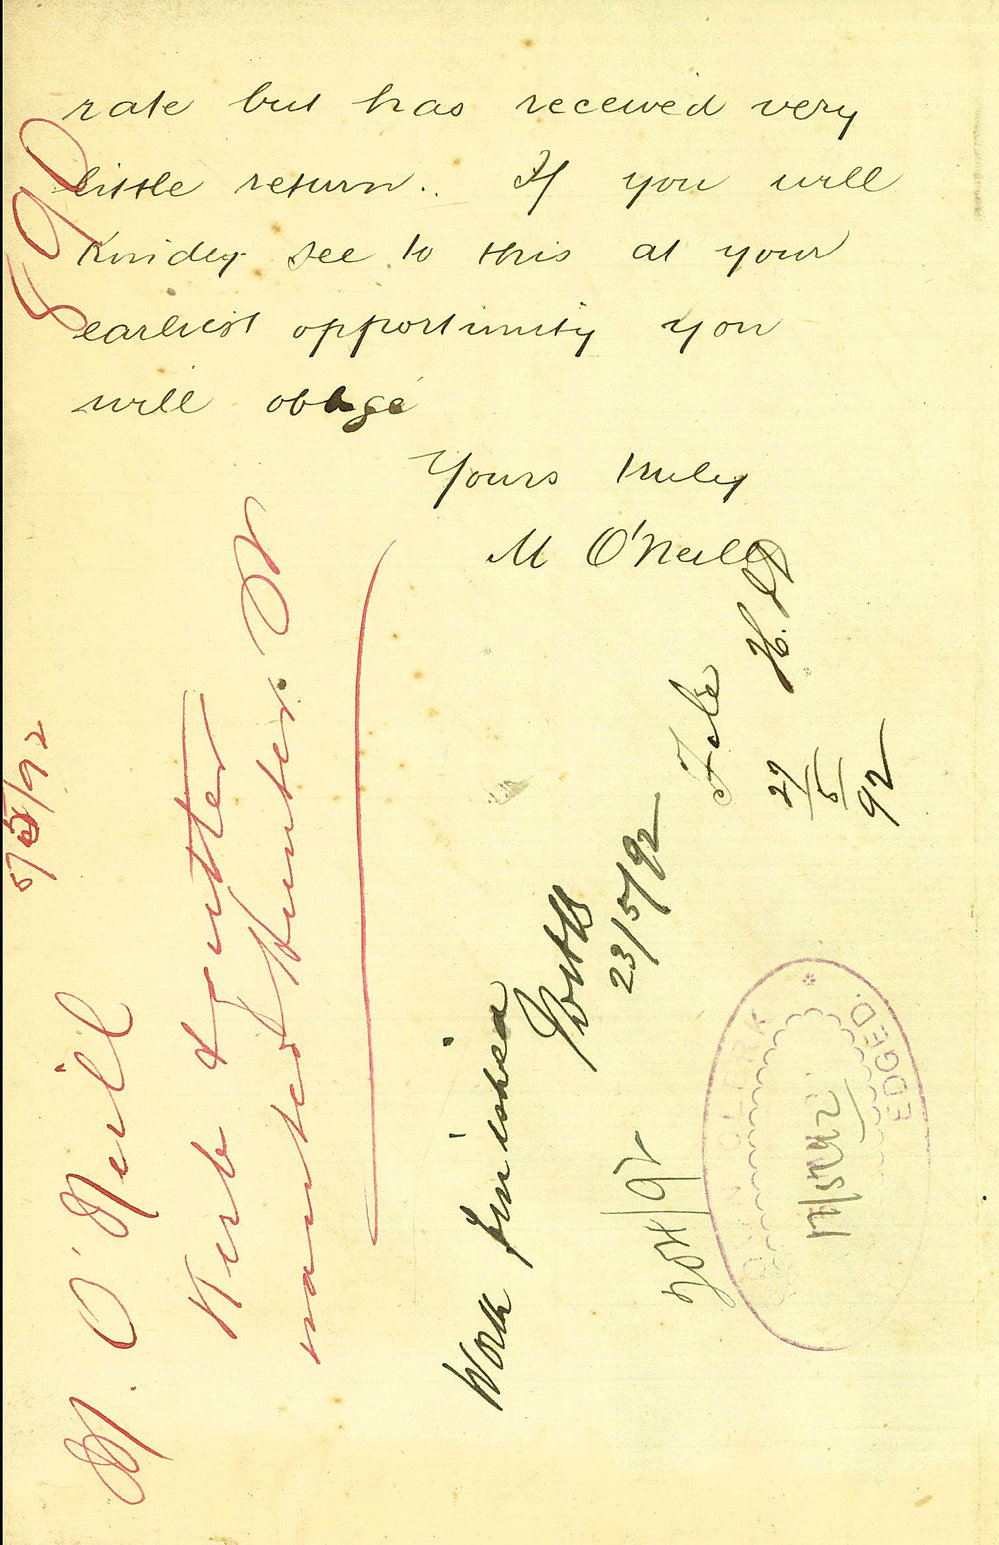 rate but has received very
little return. If you will
Kindly see to this at your
earliest opportunity you
will oblige
Yours truly
M O'Neill
890
M. O'Neill 5/5/92
Kerb & gutter
wanted Hunter St
Work finished
23/5/92
File H.
27/5/92
204/92
TOWN CLERK
17/5/92
EDGED.